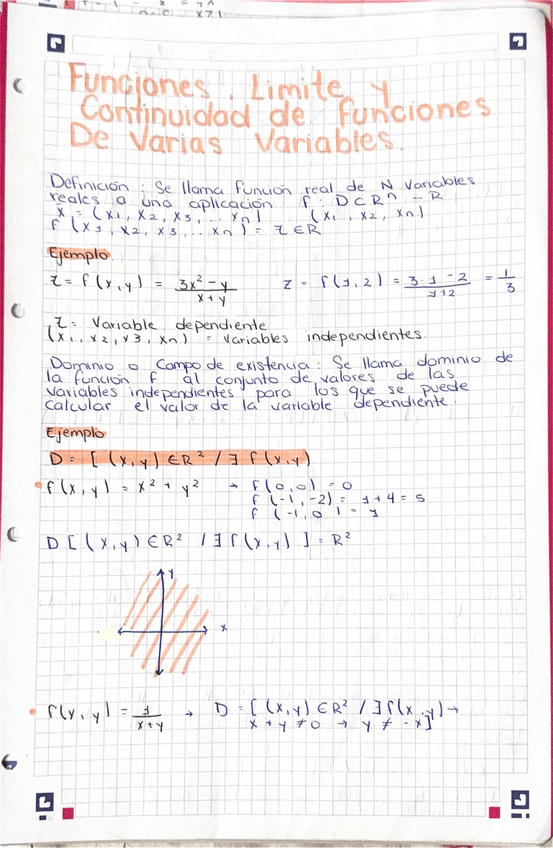 Funciones, Limite y
Continuidad de funciones
De Varias Variables.
Definición: Se llama función real de N variables
reales a una aplicación f: D⊂Rⁿ - R
x = (x1, x2, x3, ... xn) (x1, x2, xn)
f (x1, x2, x3 ... xn) = z ∈ R
Ejemplo
z = f(x,y) = 3x² - y / x + y z = f(1,2) = 3·1 - 2 / 1+2 = 1/3
z = Variable dependiente
(x1, x2, x3, xn) = Variables independientes.
Dominio o Campo de existencia: Se llama dominio de
la función f al conjunto de valores de las
variables independientes para los que se puede
calcular el valor de la variable dependiente.
Ejemplo
D = [ (x,y) ∈ R² / ∃ f(x,y)
• f(x,y) = x² + y² → f(0,0) = 0
f (-1,-2) = 1+4 = 5
f (-1,0) = 1
D [ (x,y) ∈ R² / ∃ f(x,y) ] = R²
y
x
• f(x,y) = 1 / x+y → D = [ (x,y) ∈ R² / ∃ f(x,y) →
x + y ≠ 0 → y ≠ -x ]